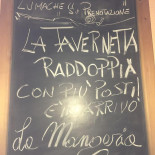 LUMACHE SU PRENOTAZIONE
LA TAVERNETTA
RADDOPPIA
CON PIÙ POSTI
E
ARRIVO
La